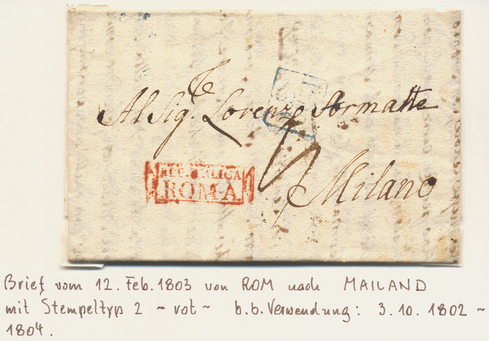 Al Sig.re Lorenzo
Milano
REPUBLICA
ROMA
Brief vom 12. Feb. 1803 von ROM nach MAILAND
mit Stempeltyp 2 - rot - b.b. Verwendung: 3. 10. 1802 -
1804.